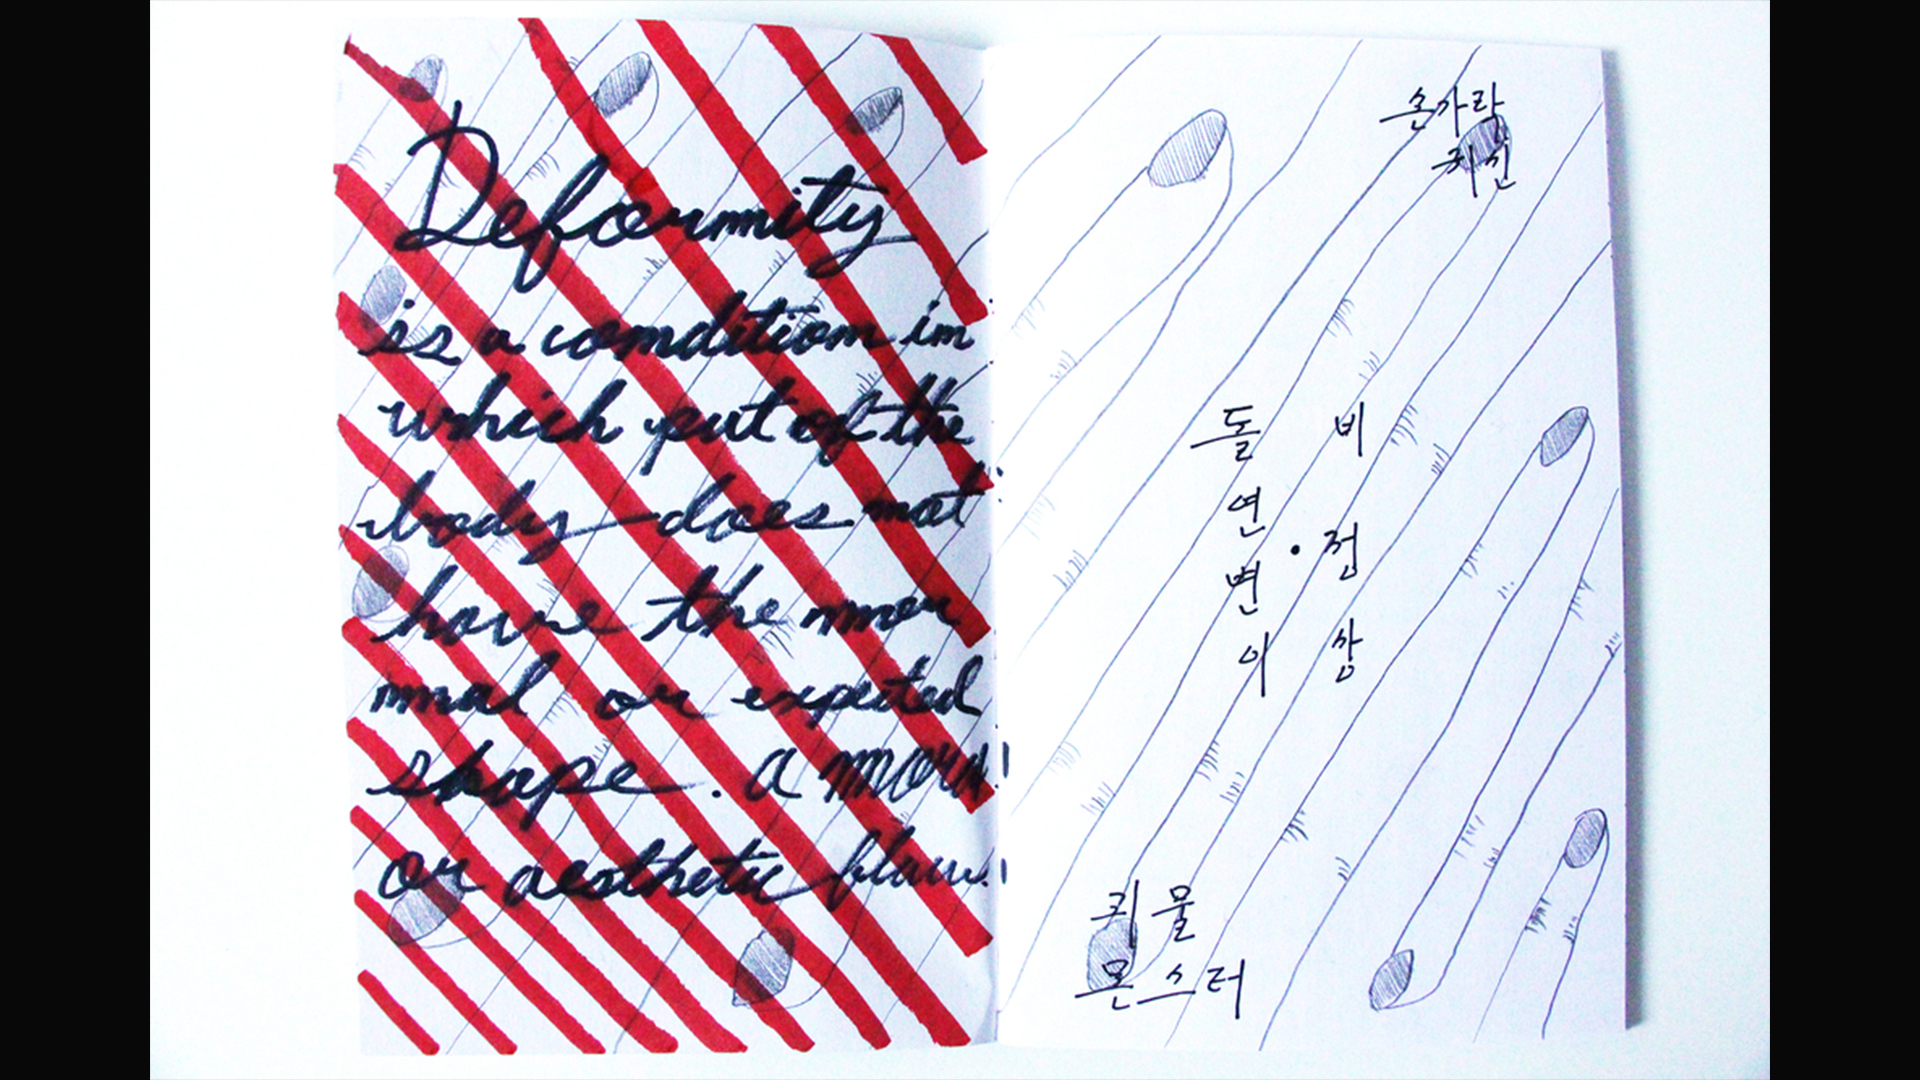 Deformity
is a condition in
which part of the
body does not
have the nor
mal or expected
shape. a moral
or aesthetic flaw.
손가락
귀신
돌연변이 · 비정상
괴물
몬스터